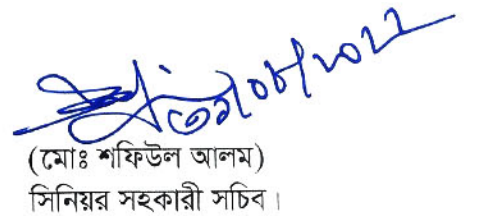 ৩১/০৮/২০২২
(মোঃ শফিউল আলম)
সিনিয়র সহকারী সচিব।